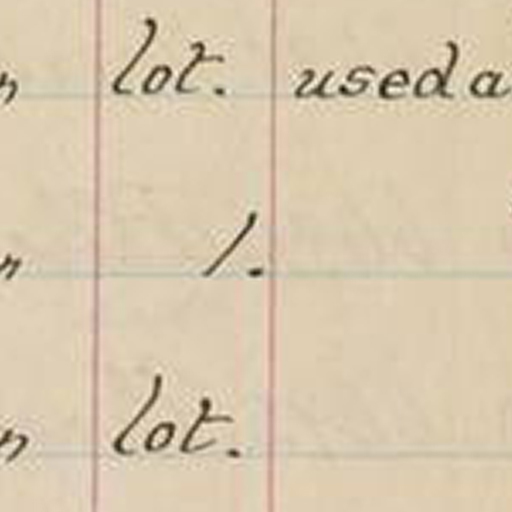 n lot. used a
n 1.
n lot.